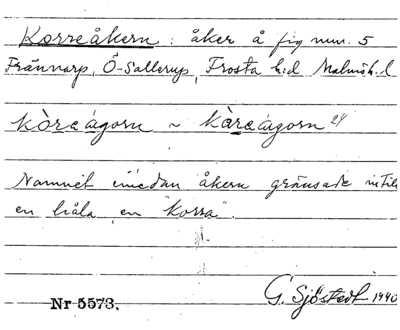 Korreåkern : åker å fig num. 5
Frännarp, Ö-Sallerup, Frosta hd Malmöh. l
kòreágorn ~ kàreágorn 24
Namnet emedan åkern gränsade intill
en håla, en "korra".
G. Sjöstedt 1940
Nr 5573.